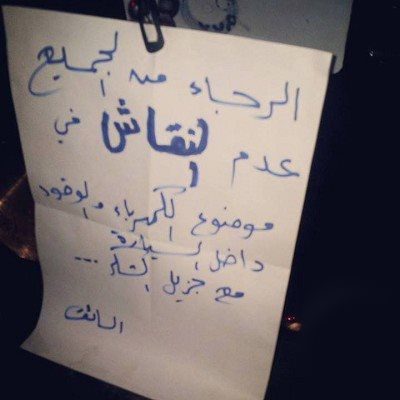 الرجاء من الجميع
عدم النقاش في
موضوع الكهرباء والوقود
داخل السيارة
مع جزيل الشكر ...
السائق